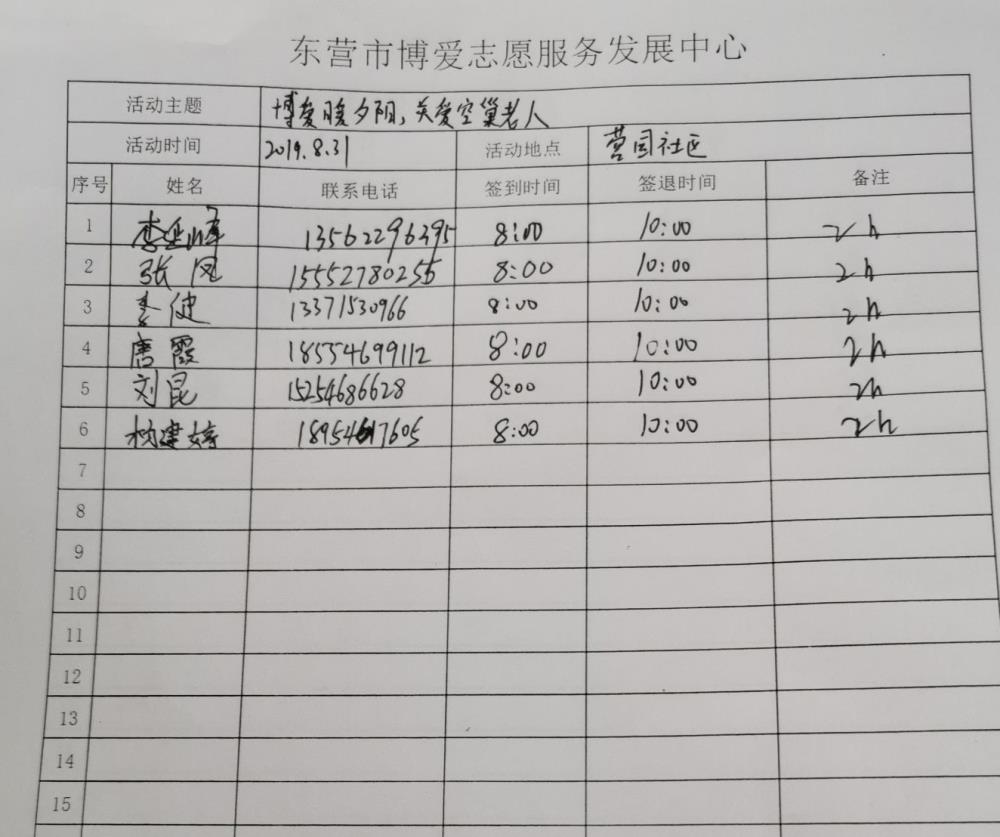 东营市博爱志愿服务发展中心
活动主题 博爱暖夕阳，关爱空巢老人
活动时间 2019.8.31 活动地点 营园社区
序号 姓名 联系电话 签到时间 签退时间 备注
1 李延峰 13562296395 8:00 10:00 2h
2 张凤 15552780255 8:00 10:00 2h
3 李健 13371530966 8:00 10:00 2h
4 唐霞 18554699112 8:00 10:00 2h
5 刘昆 15254686628 8:00 10:00 2h
6 杨建婷 18954617605 8:00 10:00 2h
7
8
9
10
11
12
13
14
15